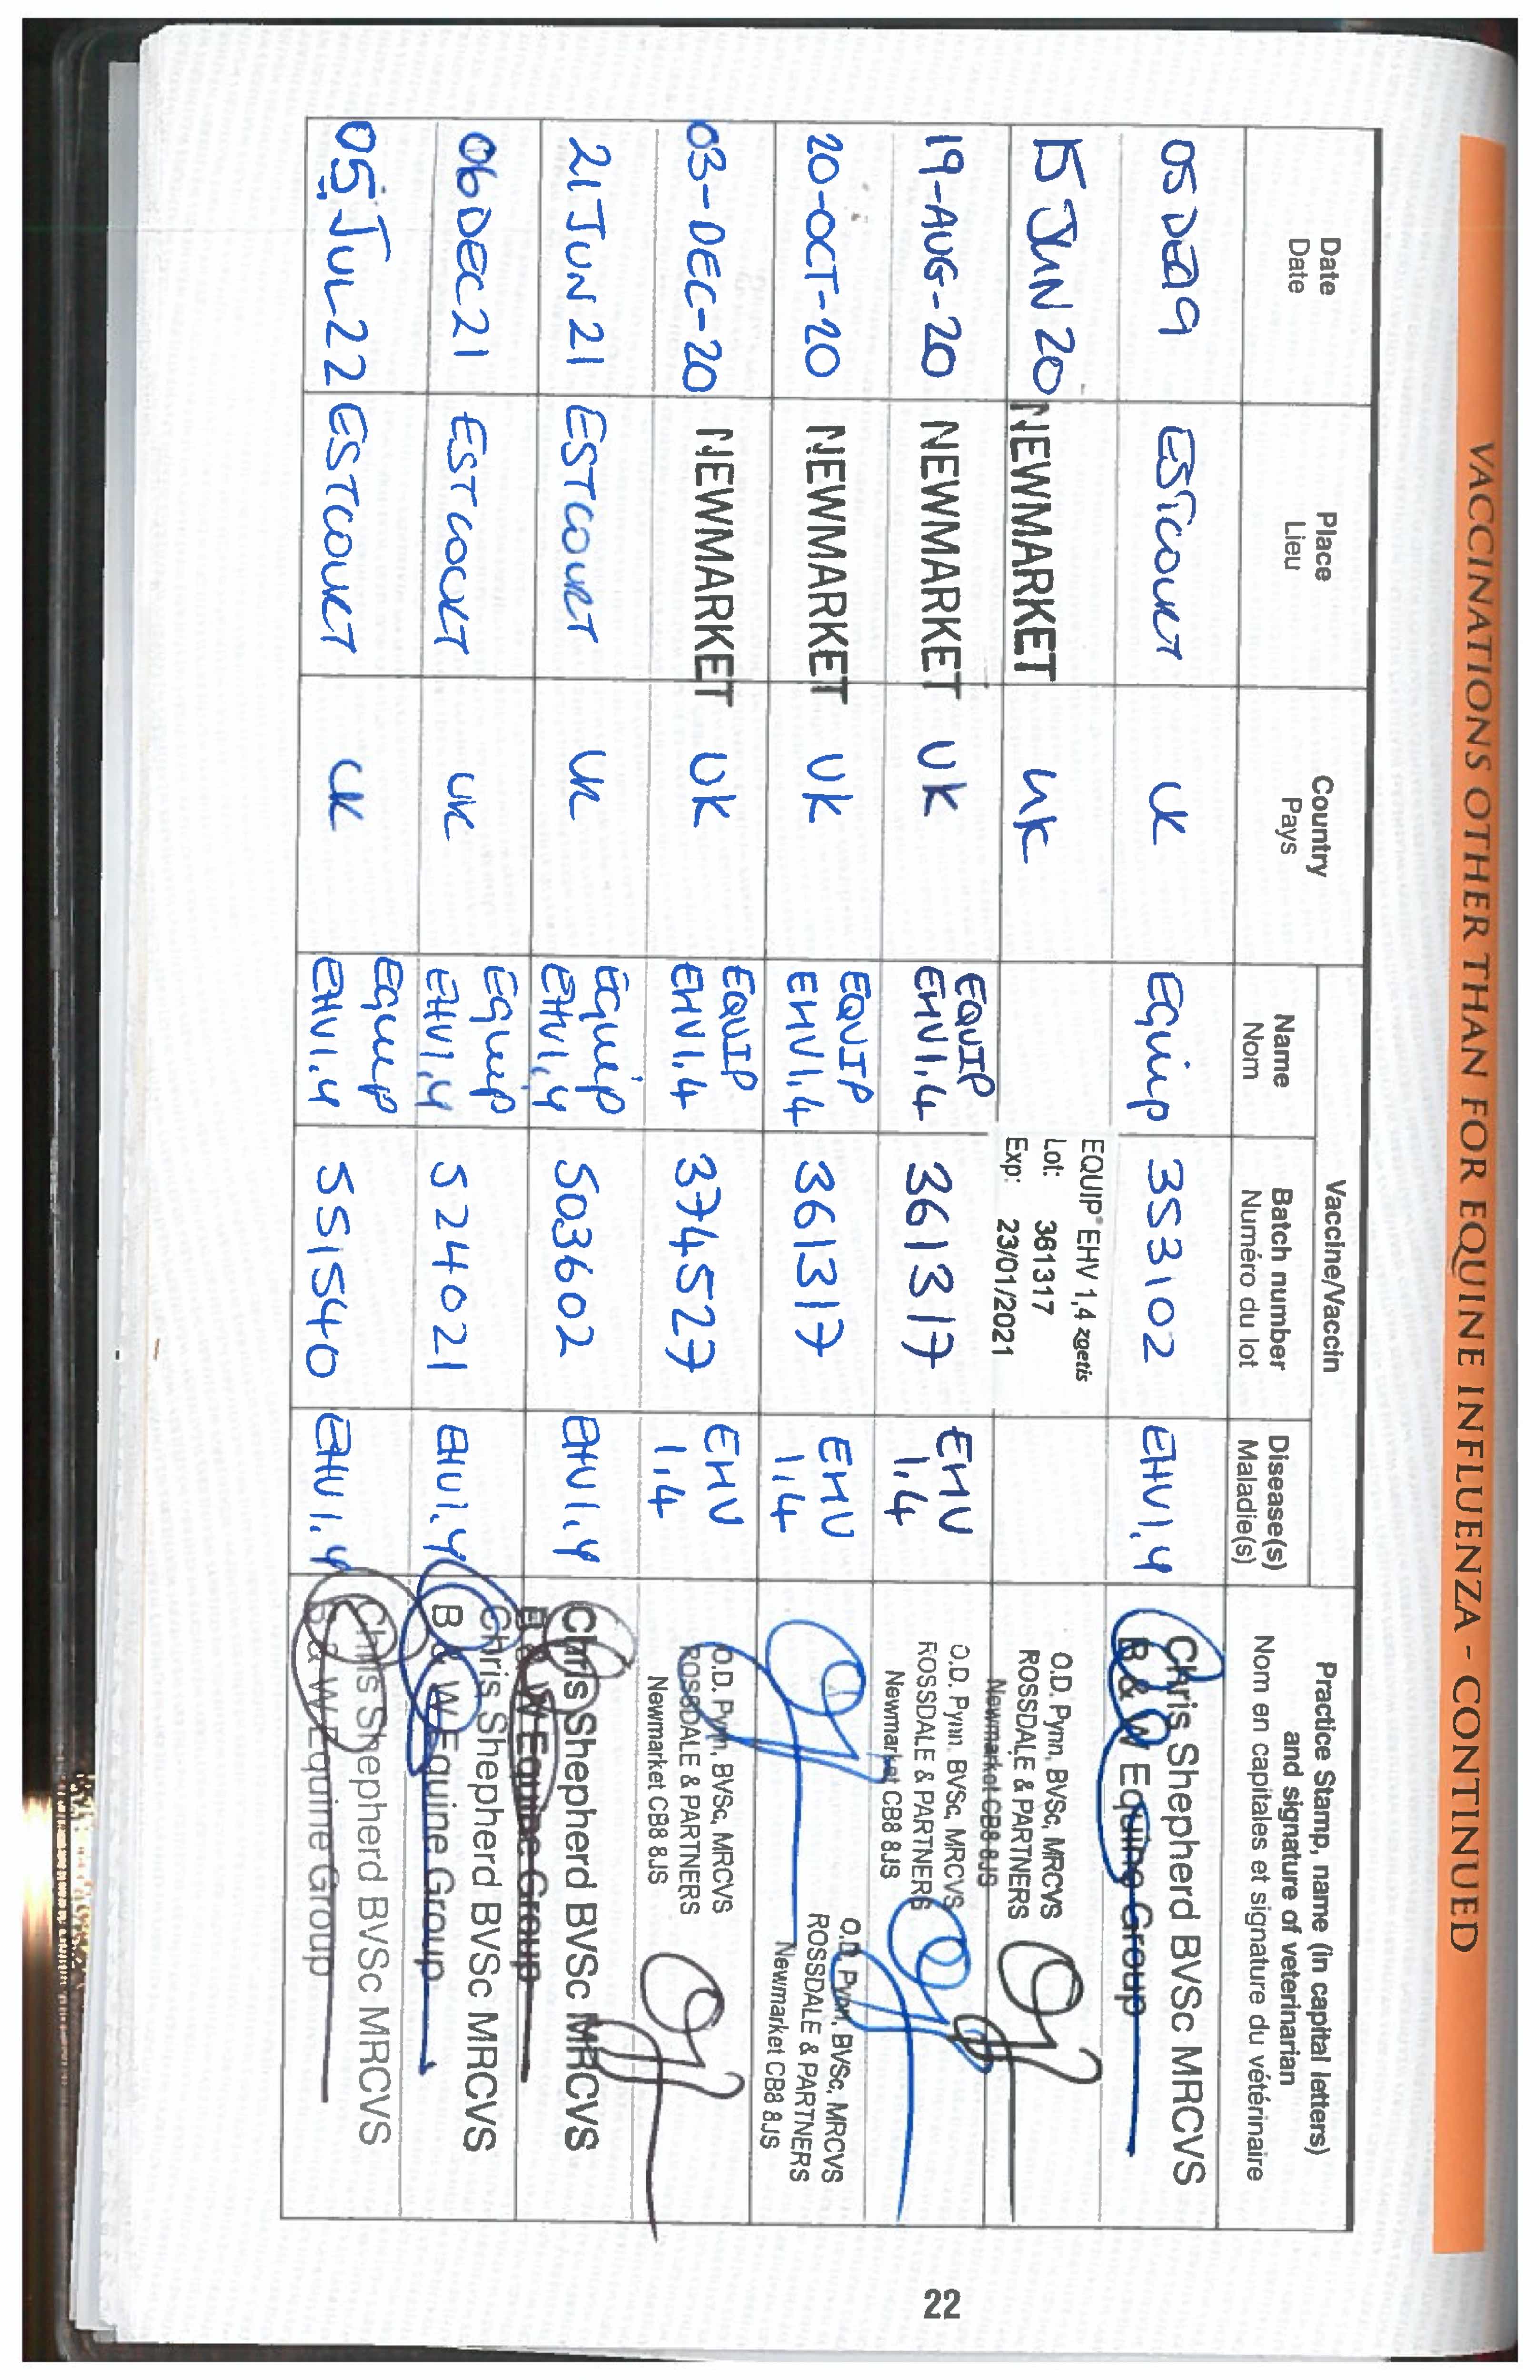 VACCINATIONS OTHER THAN FOR EQUINE INFLUENZA - CONTINUED
Date
Date
Place
Lieu
Country
Pays
Vaccine/Vaccin
Name
Nom
Batch number
Numéro du lot
Disease(s)
Maladie(s)
Practice Stamp, name (in capital letters)
and signature of veterinarian
Nom en capitales et signature du vétérinaire
05 DEC19 ESTCOURT UK Equip 353102 EHV1.4
Chris Shepherd BVSc MRCVS
B & W Equine Group
15 JUN 20 NEWMARKET UK
EQUIP® EHV 1,4 zoetis
Lot: 361317
Exp: 23/01/2021
O.D. Pynn, BVSc, MRCVS
ROSSDALE & PARTNERS
Newmarket CB8 8JS
19-AUG-20 NEWMARKET UK EQUIP
EHV1.4 361317 EHV
1.4
O.D. Pynn, BVSc, MRCVS
ROSSDALE & PARTNERS
Newmarket CB8 8JS
20-OCT-20 NEWMARKET UK EQUIP
EHV1.4 361317 EHV
1.4
O.D. Pynn, BVSc, MRCVS
ROSSDALE & PARTNERS
Newmarket CB8 8JS
03-DEC-20 NEWMARKET UK EQUIP
EHV1.4 374527 EHV
1.4
O.D. Pynn, BVSc, MRCVS
ROSSDALE & PARTNERS
Newmarket CB8 8JS
21 JUN 21 ESTCOURT UK Equip
EHV1.4 503602 EHV1.4
Chris Shepherd BVSc MRCVS
B & W Equine Group
06 DEC 21 ESTCOURT UK Equip
EHV1.4 524021 EHV1.4
Chris Shepherd BVSc MRCVS
B & W Equine Group
05 JUL 22 ESTCOURT UK Equip
EHV1.4 551540 EHV1.4
Chris Shepherd BVSc MRCVS
B & W Equine Group
22